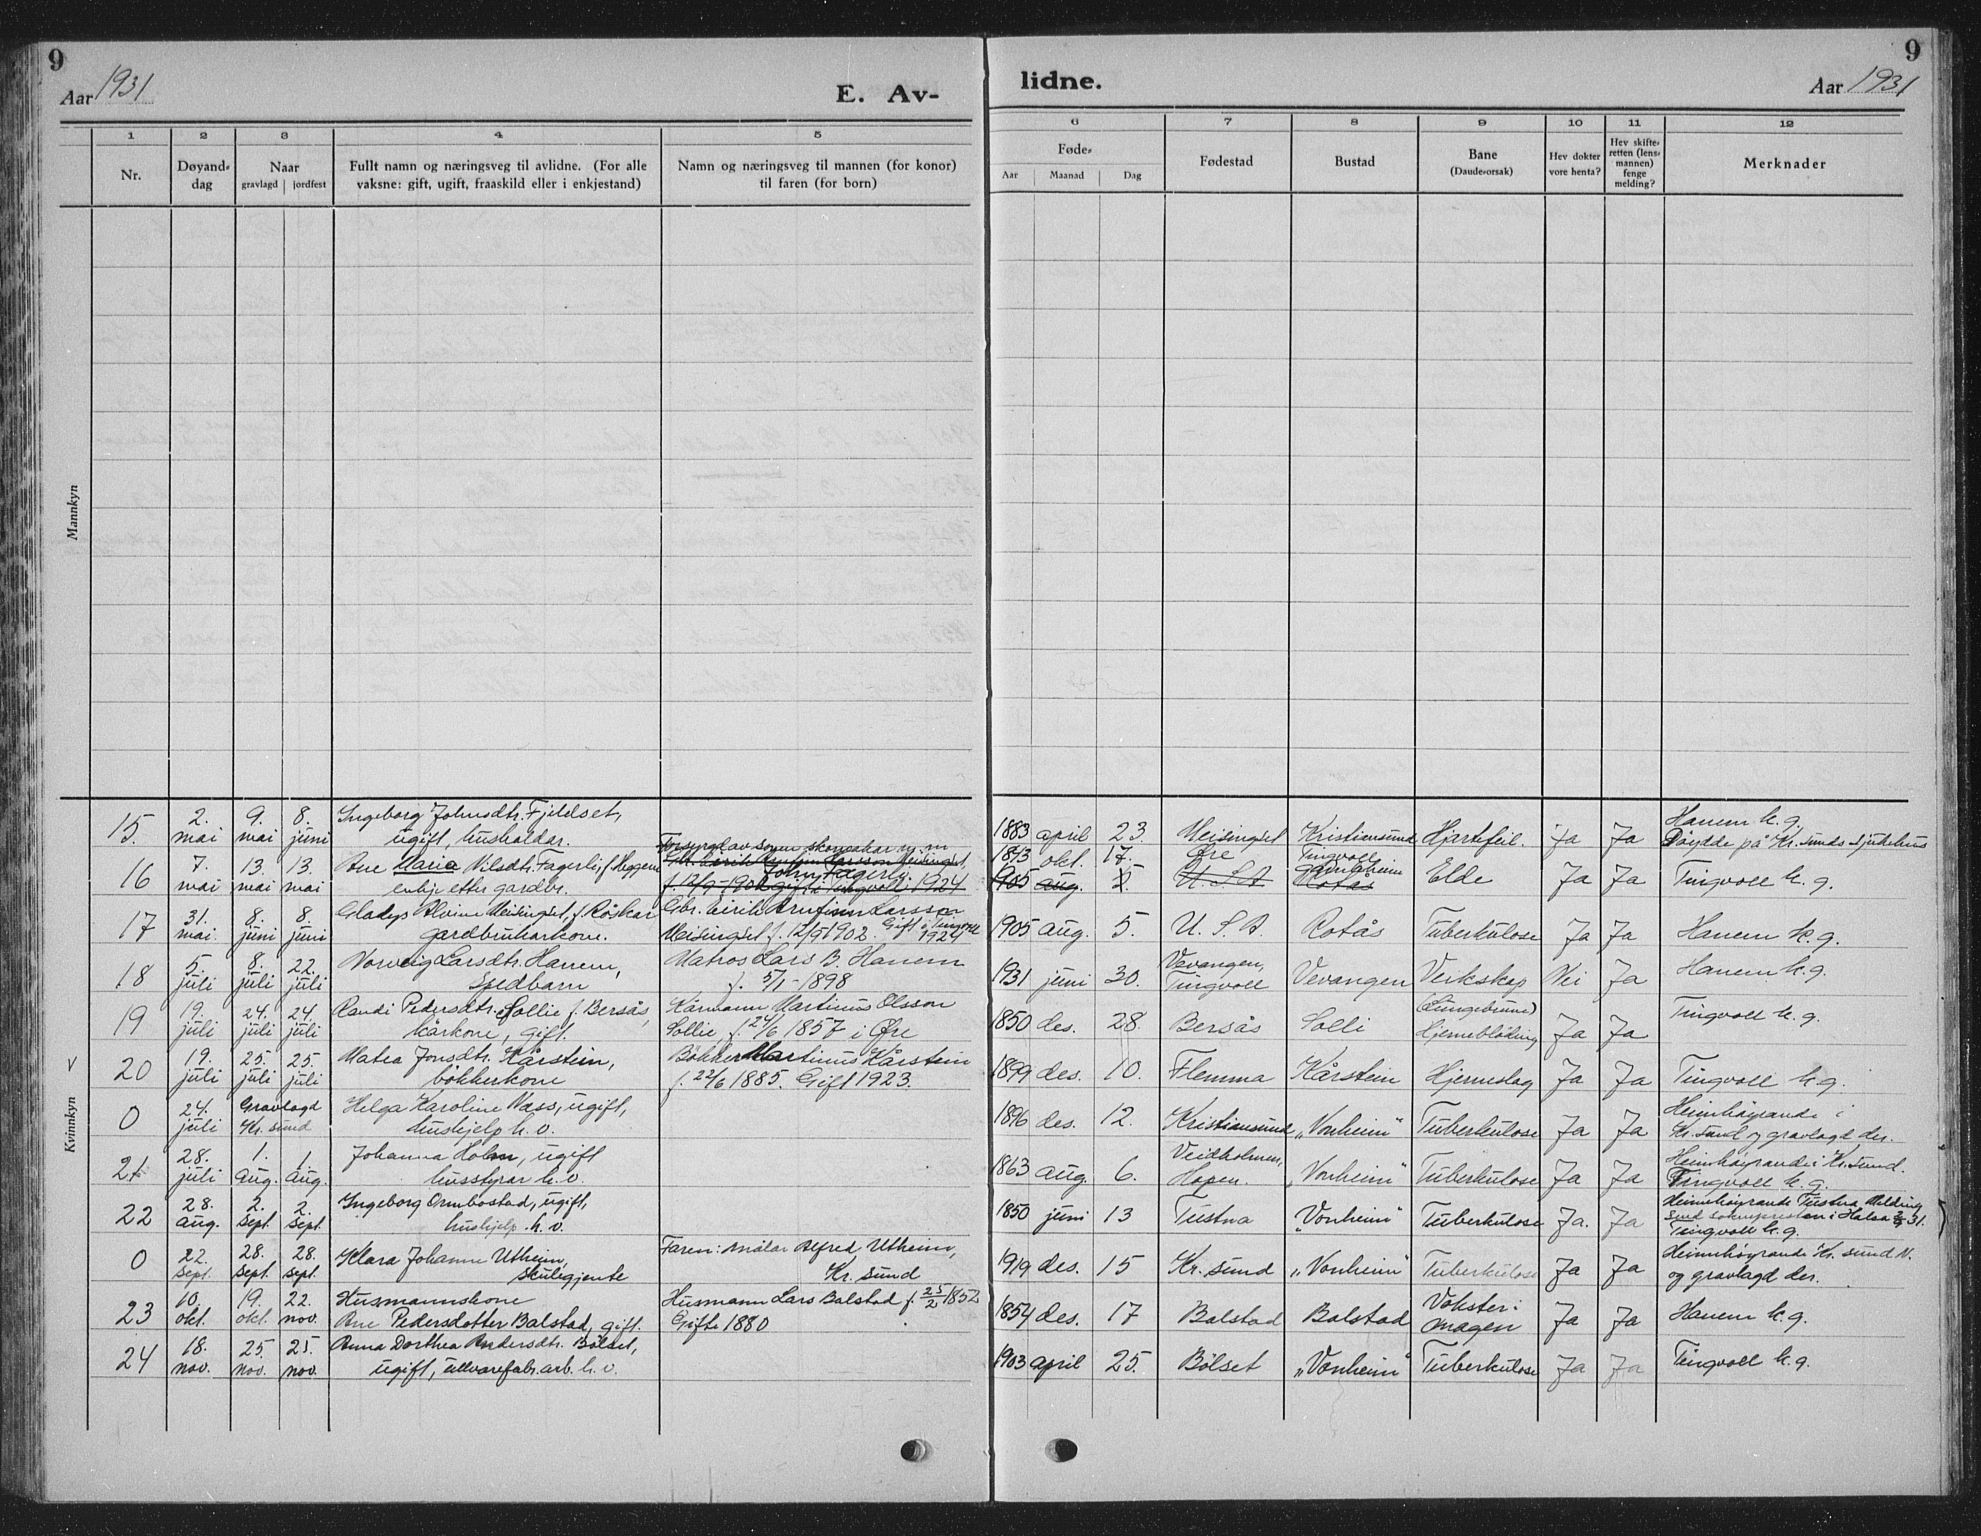 9
Aar 1931
E. Av-
lidne.
Aar 1931
9
1 2 3 4 5
6 7 8 9 10 11 12
Nr.
Døyand-dag
Naar
gravlagd | jordfest
Fullt namn og næringsveg til avlidne. (For alle
vaksne: gift, ugift, fraaskild eller i enkjestand)
Namn og næringsveg til mannen (for konor)
til faren (for born)
Føde-
Aar Maanad Dag
Fødestad
Bustad
Bane
(Daude-orsak)
Hev dokter
vore henta?
Hev skifte-
retten (lens-
mannen)
fenge
melding?
Merknader
Mannkyn
Kvinnkyn
V
15. 2. mai 9. mai 8. juni Ingeborg Johnsdtr. Fjeldset,
ugift, husholder.
1883 april 23 Meisingset Kristiansund Hjartefeil. Ja Ja Hanem k.g.
Døydde på Kr.sunds sjukehus
16 7. mai 13. mai 13. mai Ane Maria Nilsdtr. Fagerli, f. Heggem
enkje etter gardbr.
John Fagerli.
f. 12/9-1902 gift i Tingvoll 1924
1843 okt. 17. Øre Tingvoll
1905 aug. 5. U.S.A Rotås Elde Ja Ja Tingvoll k.g.
17 31. mai. 8. juni 8. juni Gladys Alvine Meisingset, f. Röskar
gardbrukarkone.
Gbr. Eirik Arnfinn Larsson
Meisingset f. 12/9 1902. Gift i Tingvoll 1924
1905 aug. 5. U. S. A. Rotås Tuberkulose Ja Ja Hanem k.g.
18 5. juli 8. juli 22. juli Norveig Larsdtr. Hanem,
Spedbarn
Matros Lars B. Hanem
f. 5/1-1898
1931 juni 30. Vevangen,
Tingvoll Vevangen Verkskap Nei Ja Hanem k.g.
19 19. juli 24. juli 24. juli Randi Pedersdtr. Sollie f. Bersås,
kårkone, gift.
Kårmann Martinus Olsson
Sollie f. 24/6 1857 i Øre
1850 des. 28 Bersås Solli (Lungebrune)
Hjerneblöding Ja Ja Tingvoll k.g.
20 19. juli 25. juli 25. juli Matea Jonsdtr. Kårstein,
bökkerkone
Bökker Martinus Kårstein
f. 22/6 1885. Gift 1923.
1899 des. 10. Flemma Kårstein Hjerneslag Ja Ja Tingvoll k.g.
0 24. juli Gravlagd
Kr. sund Helga Karoline Næss, ugift,
hushjelp h.v.
1896 des. 12. Kristiansund „Vonheim“ Tuberkulose Ja Ja Heimhøyrande i
Kr. sund og gravlagd der.
21 28. juli 1. aug. 1. aug. Johanna Holm, ugift
husstyrar h.v.
1863 aug. 6. Veidholmen,
Hopen. „Vonheim“ Tuberkulose Ja Ja Heimhøyrande i Kr. sund.
Tingvoll k.g.
22 28. aug. 2. sept. 2. sept. Ingeborg Ormbostad, ugift,
hushjelp h.v.
1850 juni 13 Tustna „Vonheim“ Tuberkulose Ja. Ja Heimhøyrande Tustna. Melding
send soknepresten i Halsa 31.
Tingvoll k.g.
0 22. sept. 28. sept. 28. sept. Klara Johanne Utheim,
skulegjente
Faren: målar Alfred Utheim,
Kr. sund
1919 des. 15 Kr. sund „Vonheim“ Tuberkulose Ja Ja Heimhøyrande Kr. sund N.
og gravlagd der.
23 10. okt. 19. okt. 22. nov. Husmannskone
Ane Pedersdotter Balstad, gift.
Husmann Lars Balstad f. 25/2 1852
Gifte 1880
1854 des. 17 Balstad Balstad Vokster i
magen Ja Ja Hanem k.g.
24 18. nov. 25. nov. 25. nov. Anna Dorthea Andersdtr. Bölset,
ugift, ullvarefabr.arb. h.v.
1903 april 25. Bölset „Vonheim“ Tuberkulose Ja Ja Tingvoll k.g.